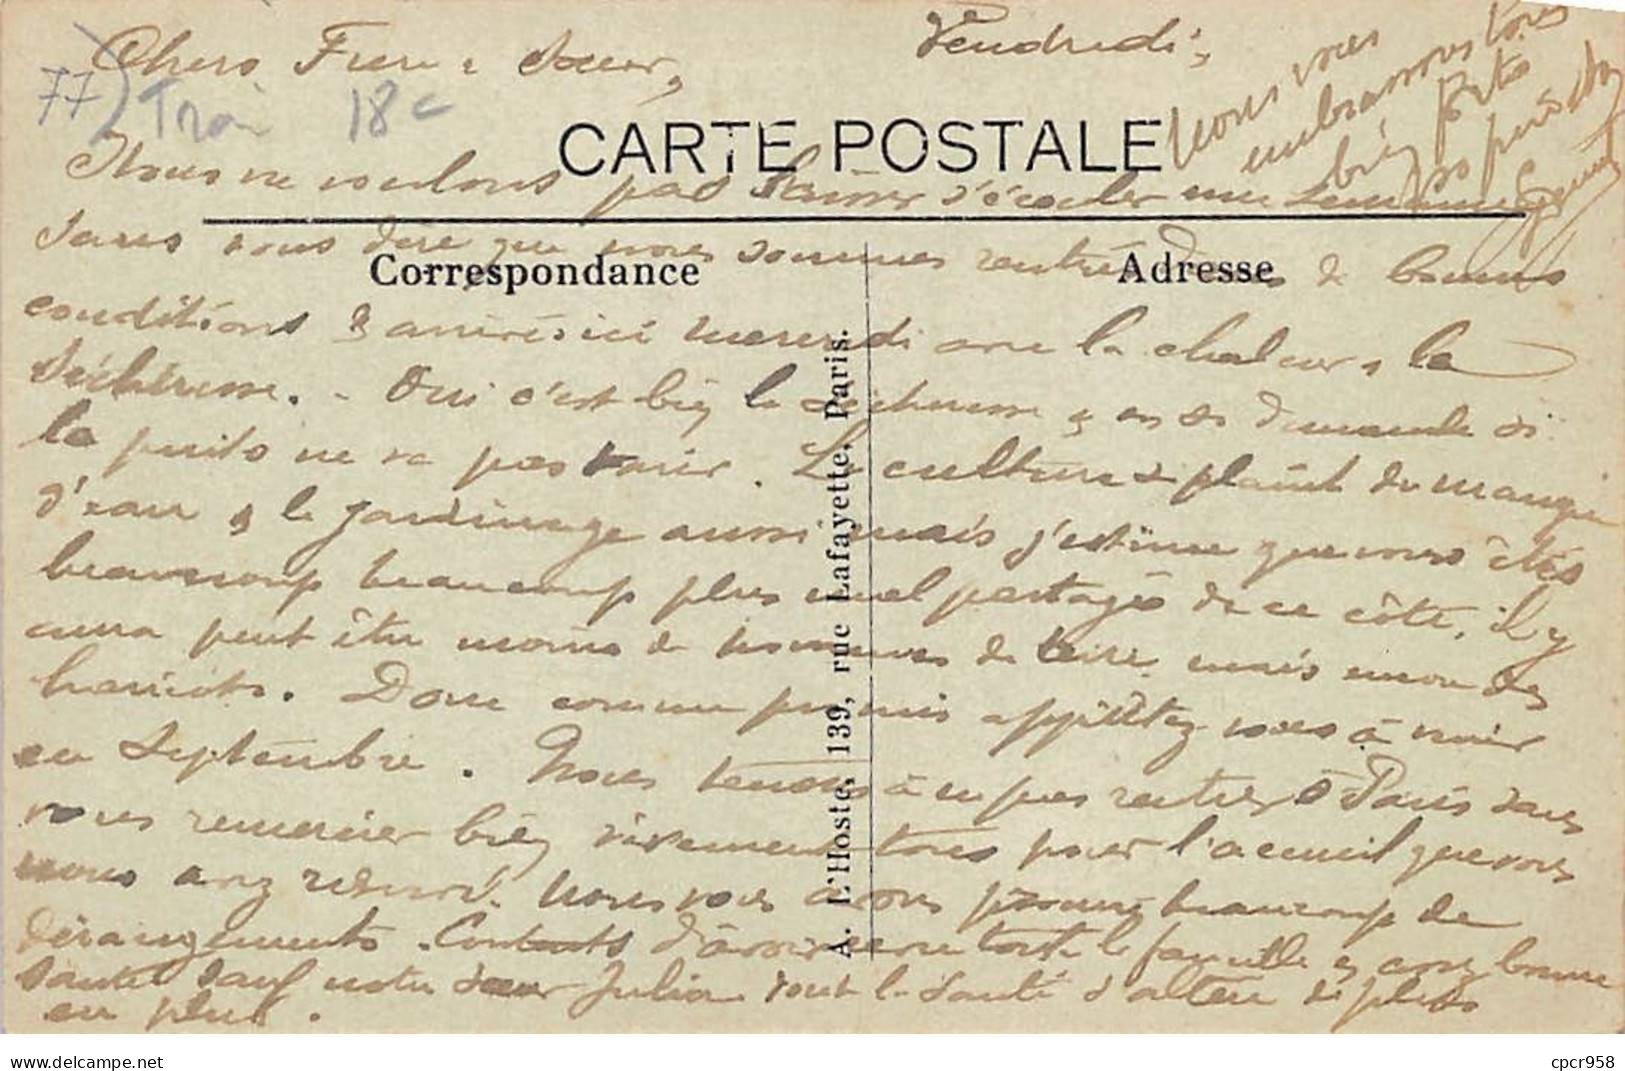 Chers Frère & Sœur,
Vendredi,
77) Train 18c
CARTE POSTALE
Nous ne voulons pas laisser s'écouler une semaine
sans vous dire que nous sommes rentrés de bonnes
Correspondance
Adresse
conditions & arrivés ici mercredi avec la chaleur & la
sécheresse. - Oui c'est bien la sécheresse & on se demande si
le puits ne va pas tarir. La culture se plaint du manque
d'eau & le jardinage aussi mais j'estime que vous êtes
beaucoup beaucoup plus mal partagés de ce côté, il y
aura peut être moins de pommes de terre mais non des
haricots. Donc comme promis apprêtez vous à venir
en Septembre. Nous tenons à ne pas rentrer à Paris sans
vous remercier bien vivement tous pour l'accueil que vous
nous avez réservé. Nous vous avons procuré beaucoup de
dérangements. Contents d'avoir vu toute la famille en bonne
santé sauf notre sœur Julia dont la santé s'altère de plus
en plus.
Nous vous
embrassons tous
bien fort
A. L'Hoste, 139, rue Lafayette, Paris.
www.delcampe.net
cpcr958